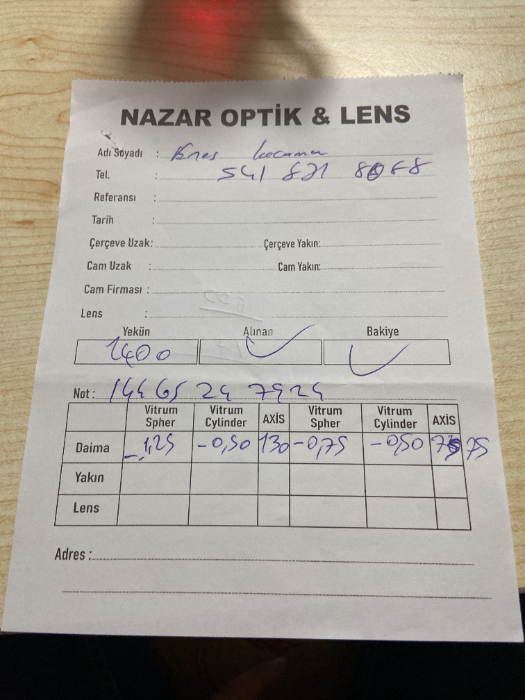 NAZAR OPTİK & LENS
Adı Soyadı : Enes
Tel. : 541 821 8068
Referansı :
Tarih :
Çerçeve Uzak: Çerçeve Yakın:
Cam Uzak : Cam Yakın:
Cam Firması :
Lens :
Yekün Alınan Bakiye
1400
Not: 14465 24 7924
Vitrum Spher Vitrum Cylinder AXİS Vitrum Spher Vitrum Cylinder AXİS
Daima -1,25 -0,50 130 -0,75 -0,50 75
Yakın
Lens
Adres :